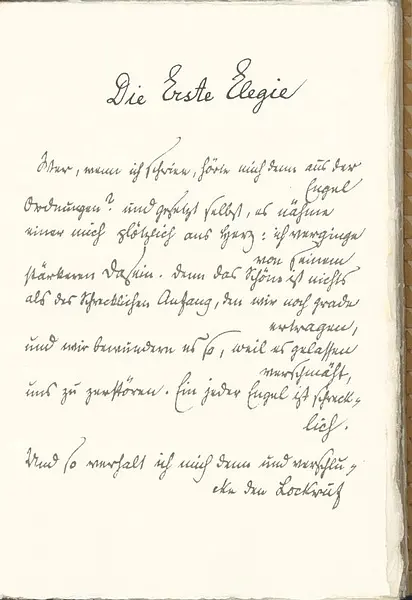 Die Erste Elegie
Wer, wenn ich schriee, hörte mich denn aus der
Engel
Ordnungen? und gesetzt selbst, es nähme
einer mich plötzlich ans Herz: ich verginge
von seinem
stärkeren Dasein. denn das Schöne ist nichts
als des Schrecklichen Anfang, den wir noch grade
ertragen,
und wir bewundern es so, weil es gelassen
verschmäht,
uns zu zerstören. Ein jeder Engel ist schreck-
lich.
Und so verhalt ich mich denn und verschlu-
cke den Lockruf